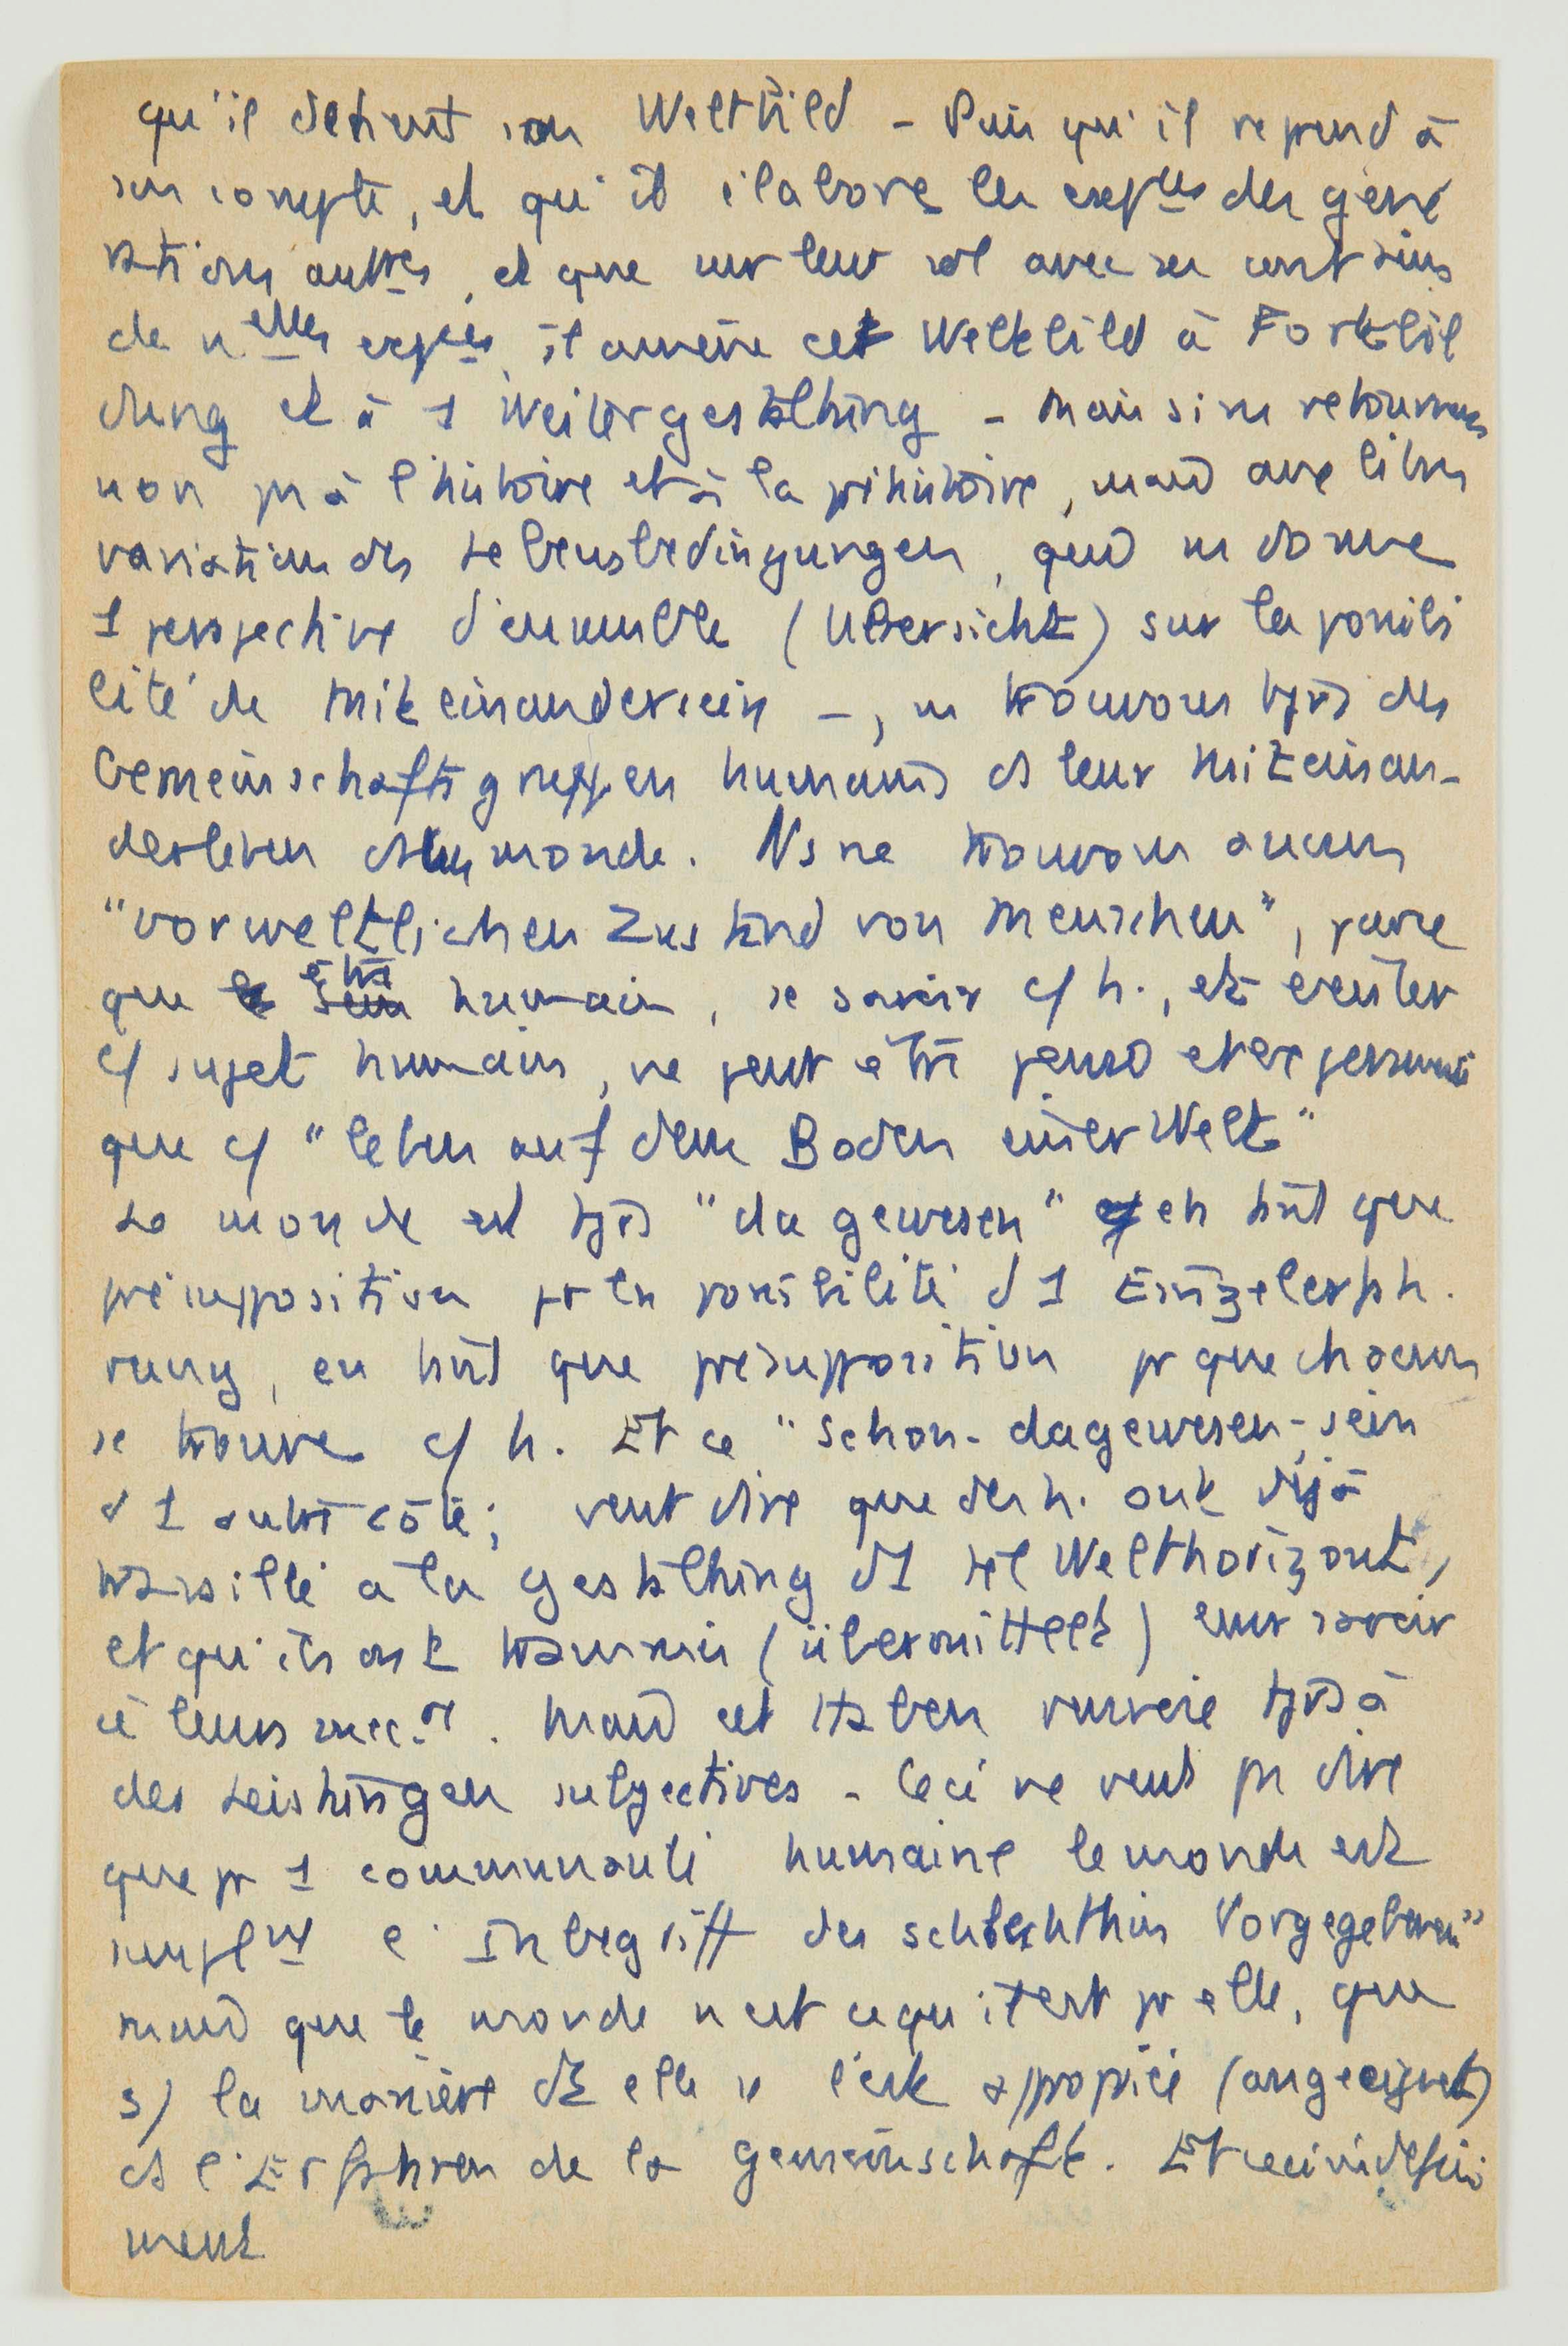 qu'il détient son Weltbild - Puis qu'il reprend à
son compte, et qu'il élabore les exp^ces des géné
rations autres, et que sur leur sol avec ses
de n^elles exp^ces, il amène cet Weltbild à Fortbil
dung et à 1 Weitergestaltung - Mais si ns retournons
non pr à l'histoire et à la préhistoire, mais aux libres
variations des Lebensbedingungen, qui ns donne
1 perspective d'ensemble (Übersicht) sur la possibi
lité de Miteinandersein -, ns trouvons tjrs des
Gemeinschaftsgruppen humains ds leur Miteinan-
derleben ds leur monde. Ns ne trouvons aucun
"vorweltlichen Zustand von Menschen", parce
que être humain, se savoir c/ h., et exister
c/ sujet humain, ne peut être pensé et expérimenté
que c/ "leben auf dem Boden einer Welt"
Le monde est tjrs "da gewesen" en tant que
présupposition pr la possibilité d 1 Einzelerfah.
rung, en tant que présupposition pr que chacun
se trouve c/ h. Et ce "schon-dagewesen-sein
d 1 autre côté; veut dire que des h. ont déjà
travaillé à la gestaltung d1 tel Welthorizont,
et qu'ils ont transmis (übermittelt) leur savoir
à leurs succ.^rs. Mais cet Haben renvoie tjrs à
des Leistungen subjectives - Ceci ne veut pr dire
que pr 1 communauté humaine le monde est
simpl^nt l' Inbegriff des schlechthin Vorgegebenen"
mais que le monde n'est ce qu'il est pr elle, que
s/ la manière dt elle se l'est approprié (angeeignet)
ds l'Erfahren de la Gemeinschaft. Et ceci indéfini
ment